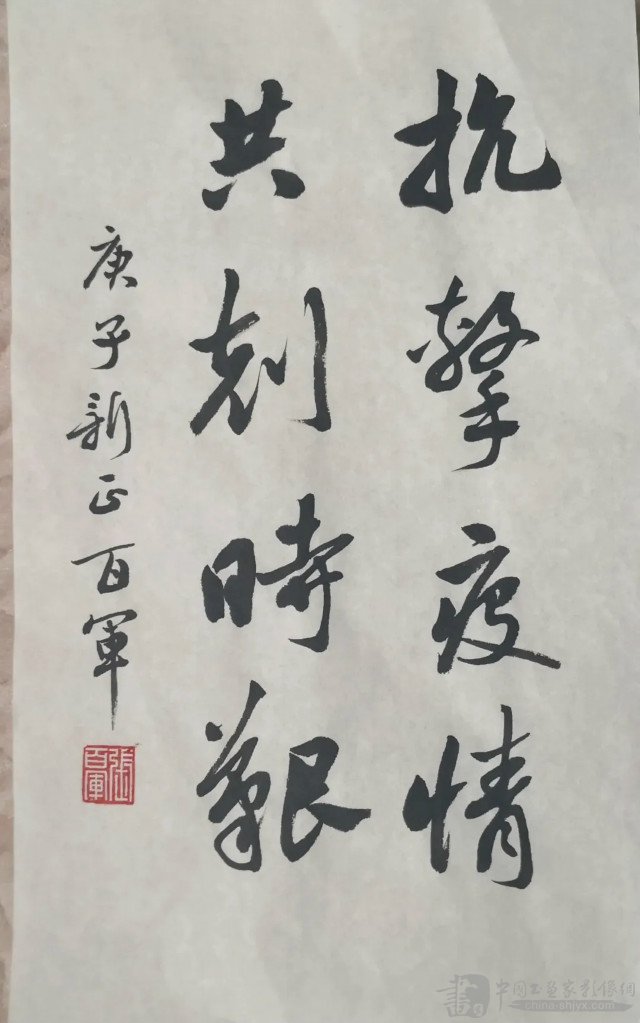 抗擊疫情
共剋時艱
庚子新正百軍
張百軍
中國书画家影像網
china-shjyx.com